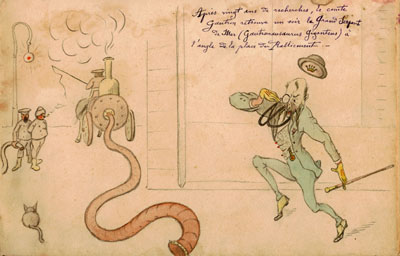 Après vingt ans de recherches, le comte
Gontran retrouva un soir le Grand Serpent
de Mer (Gontranosaurus Giganteus) à
l'angle de la place du Ralliement —